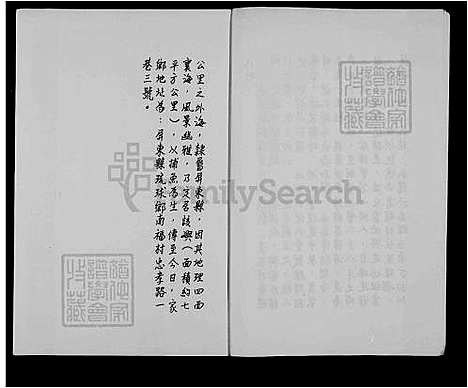 公里之外海，隸屬屏東縣，因其地理四面
寰海，風景幽雅，乃定居該嶼（面積約七
平方公里），以捕魚為生，傳至今日，家
鄉地址為：屏東縣琉球鄉南福村忠孝路一
巷三號。
FamilySearch